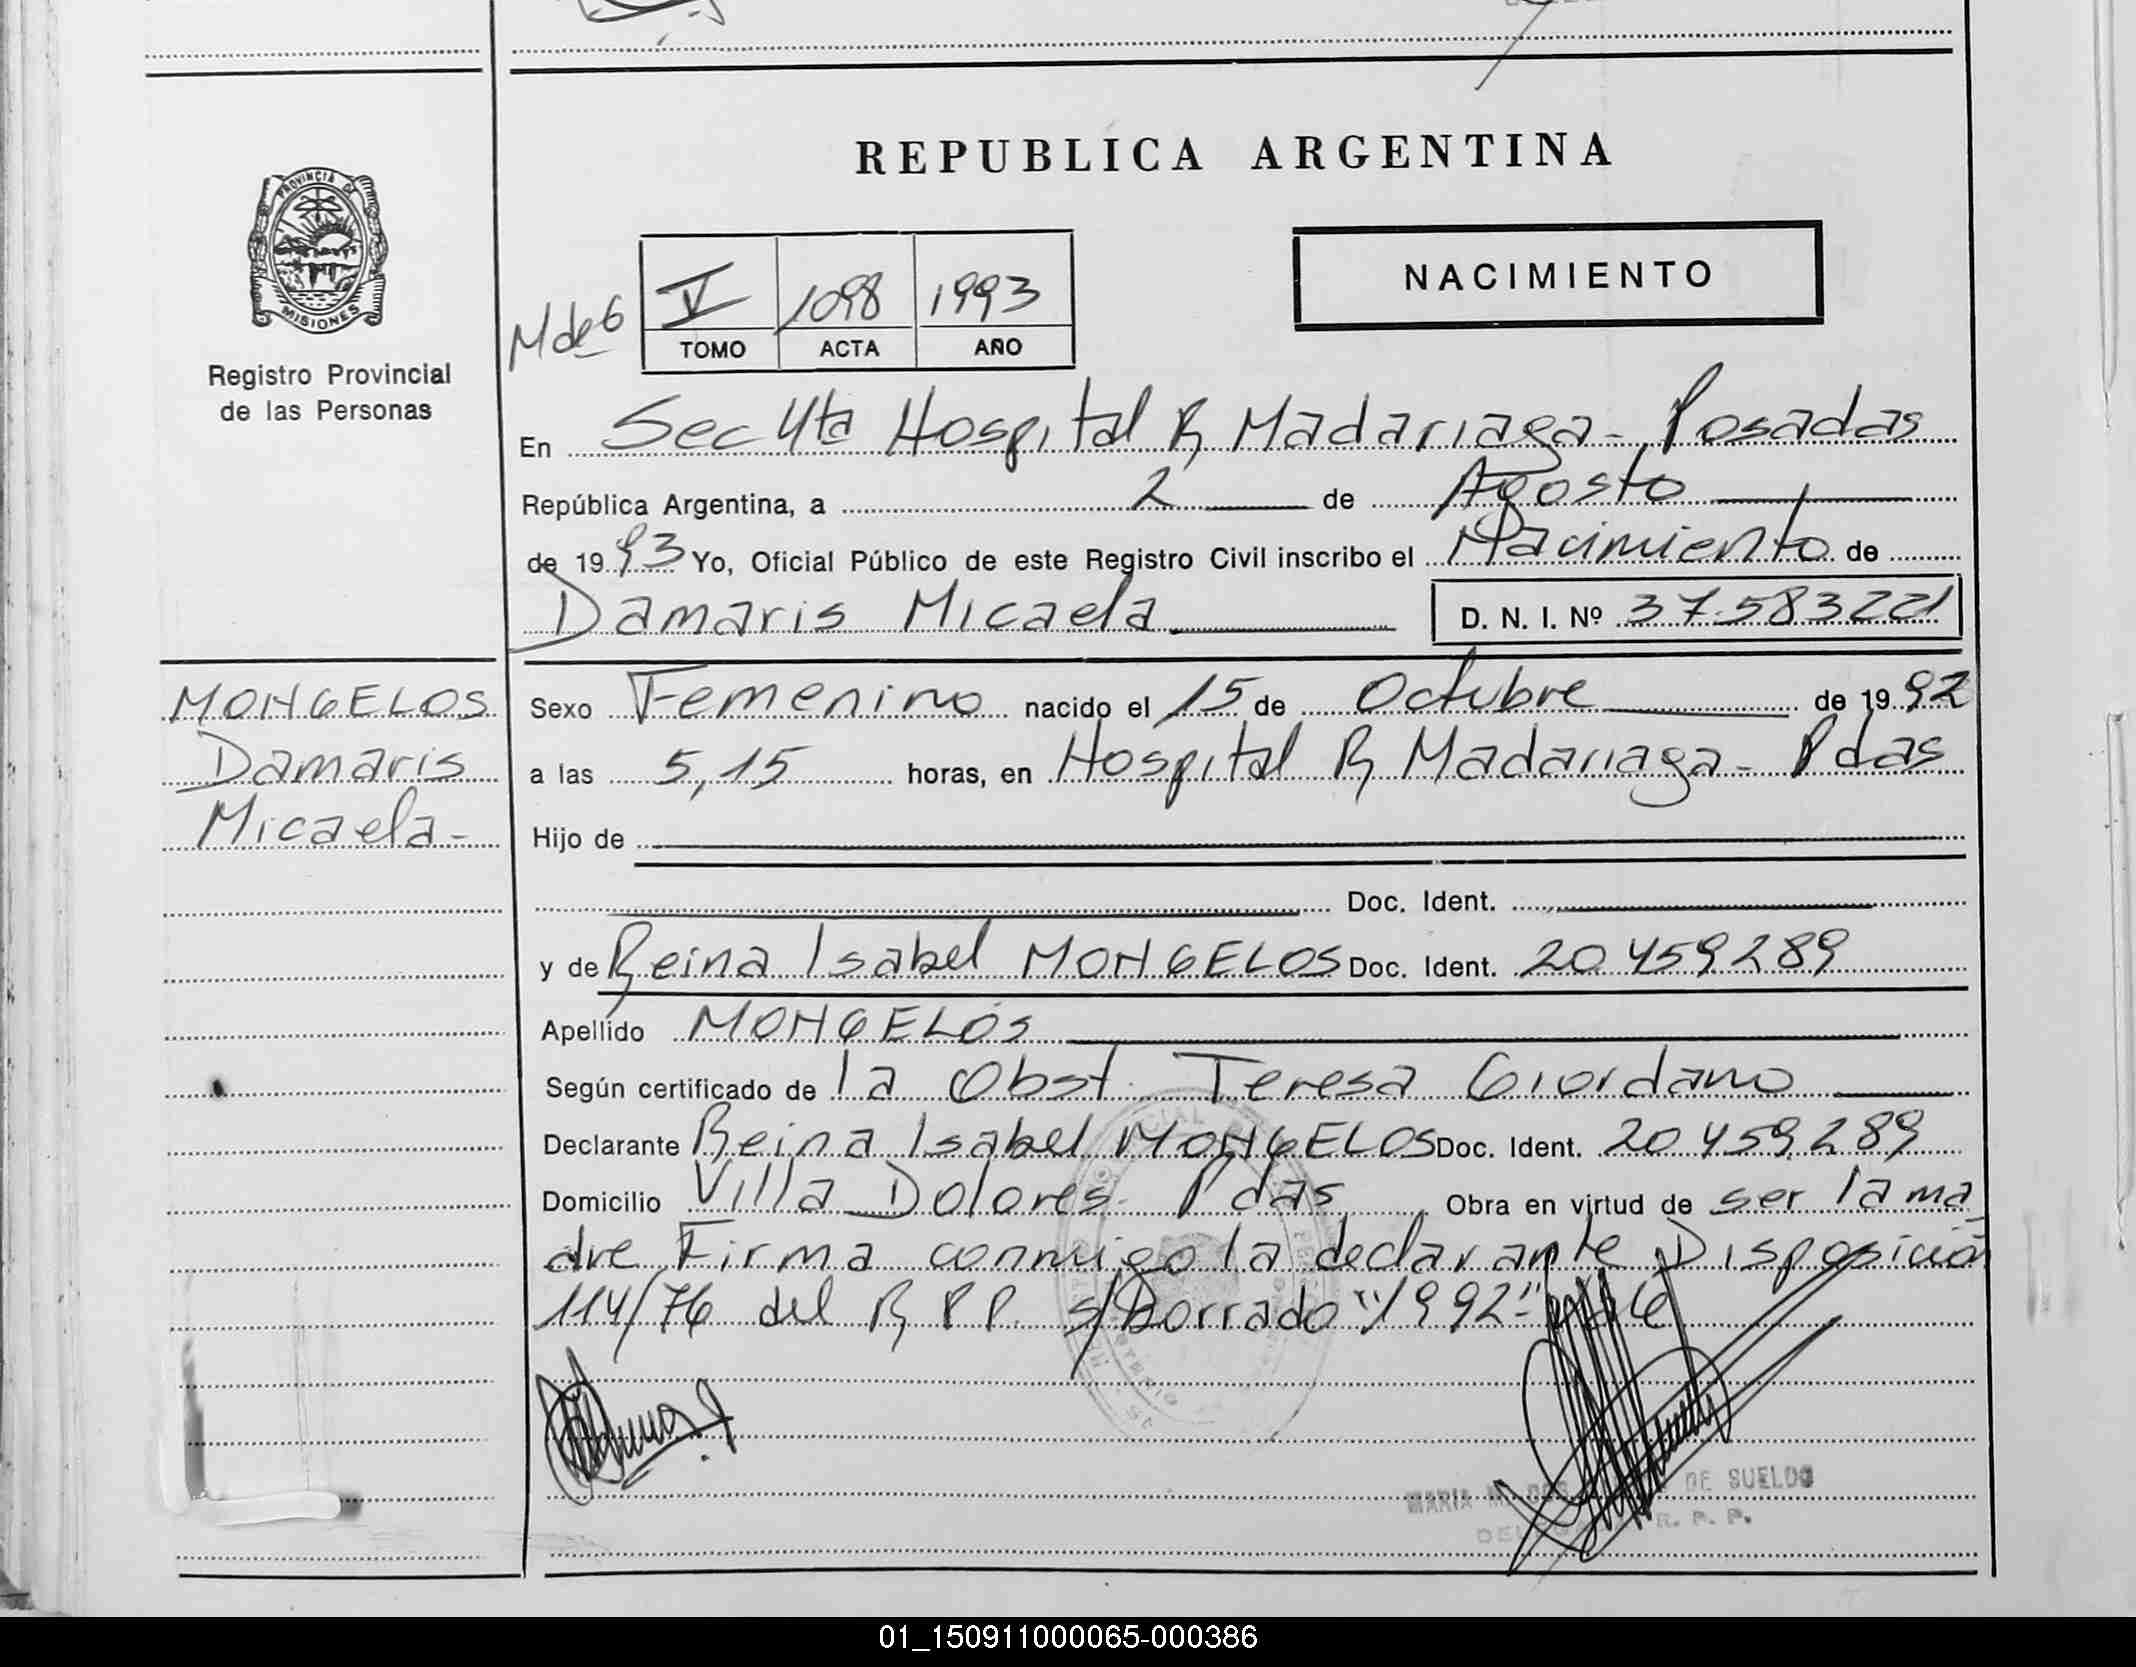 REPUBLICA ARGENTINA
NACIMIENTO
PROVINCIA DE
MISIONES
Registro Provincial
de las Personas
M de 6
V 1098 1993
TOMO ACTA AÑO
En Sec 4ta Hospital R Madariaga - Posadas
República Argentina, a 2 de Agosto
de 1993 Yo, Oficial Público de este Registro Civil inscribo el Nacimiento de
Damaris Micaela D. N. I. Nº 37.583221
MONGELOS
Damaris
Micaela-
Sexo Femenino nacido el 15 de Octubre de 1992
a las 5,15 horas, en Hospital R Madariaga - Pdas
Hijo de
Doc. Ident.
y de Reina Isabel MONGELOS Doc. Ident. 20 459 289
Apellido MONGELOS
Según certificado de la Obst. Teresa Giordano
Declarante Reina Isabel MONGELOS Doc. Ident. 20 459.289
Domicilio Villa Dolores Pdas Obra en virtud de ser la ma
dre Firma conmigo la declarante Disposición
114/76 del R P P. s/Borrado "1992"
MARIA DE SUELDO
R. P. P.
01_150911000065-000386